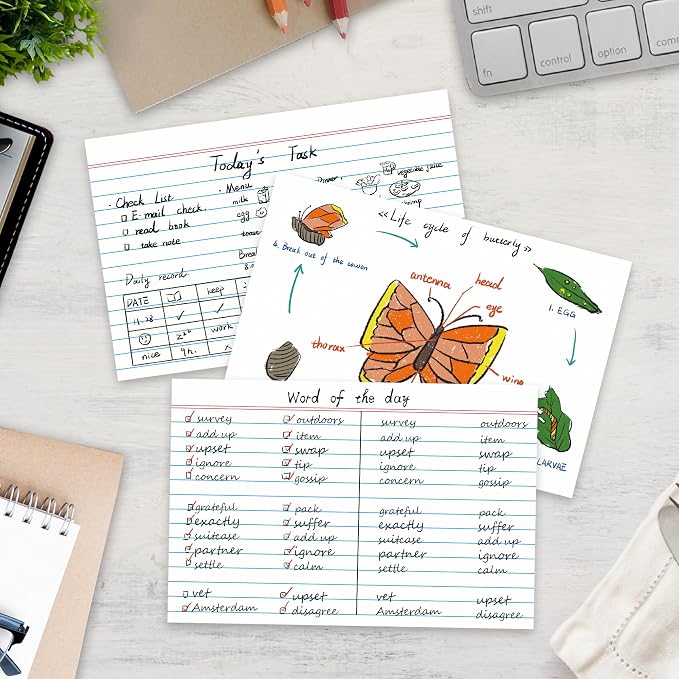 shift
fn
control
option
comm
Today's Task
· Check List
E-mail check.
read book
take note
· Menu
milk
egg
toast
Dinner
vegetable juice
Daily record
DATE
keep
11.28
work
nice
9h.
<<Life cycle of butterly>>
4. Break out of the cocoon
antenna
head
eye
thorax
wing
1. EGG
LARVAE
Word of the day
survey outdoors survey outdoors
add up item add up item
upset swap upset swap
ignore tip ignore tip
concern gossip concern gossip
grateful pack grateful pack
exactly suffer exactly suffer
suitcase add up suitcase add up
partner ignore partner ignore
settle calm settle calm
vet upset vet upset
Amsterdam disagree Amsterdam disagree